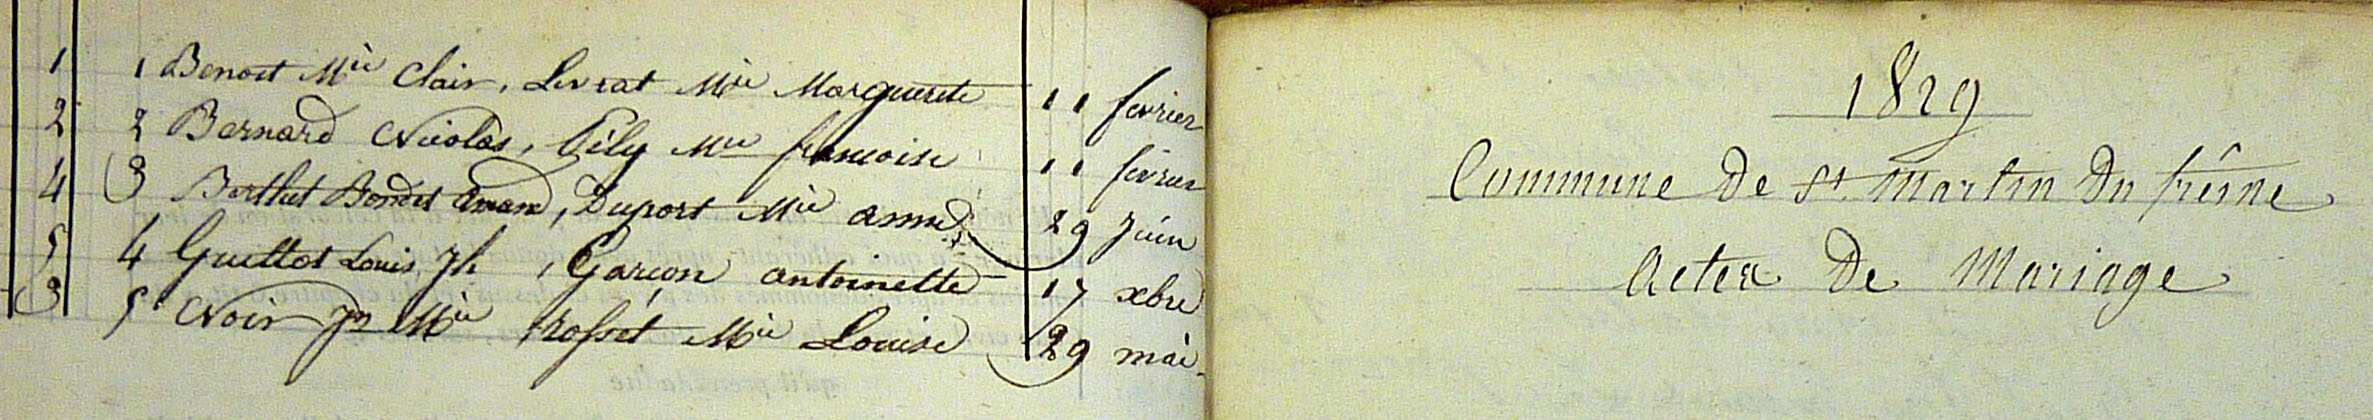 1 1 Benoit Mie Clair, Livrat Mie Marguerite 11 fevrier
2 2 Bernard Nicolas, Pély Mie francoise 11 fevrier
4 3 Berthet Bondet amand, Duport Mie anne 29 Juin
5 4 Guillot Louis Jh, Garçon antoinette 17 xbre
3 5 Noir Jn Mie rosset Mie Louise 29 mai
1829
Commune De St. Martin Du frêsne
Actes De Mariage